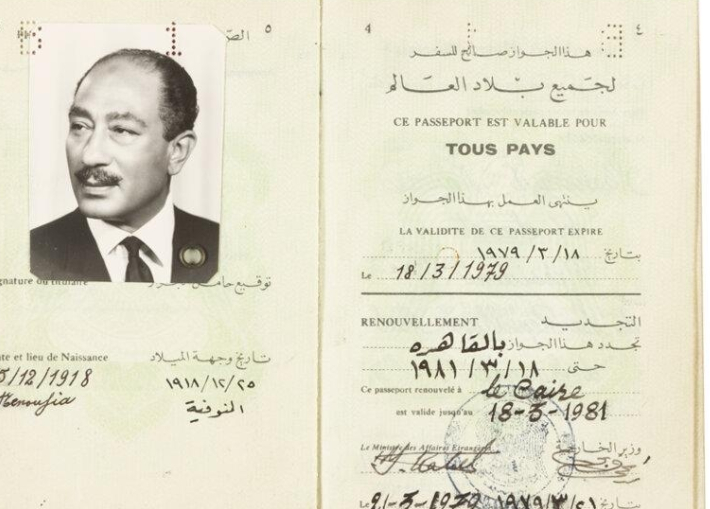 ٥
الص
توقيع حامل
gnature du titulaire
تاريخ وجهة الميلاد
te et lieu de Naissance
١٩١٨/١٢/٢٥
5/12/1918
المنوفية
Menoufia
4
٤
هذا الجواز صالح للسفر
لجميع بلاد العالم
CE PASSEPORT EST VALABLE POUR
TOUS PAYS
ينتهى العمل بهذا الجواز
LA VALIDITE DE CE PASSEPORT EXPIRE
بتاريخ ١٩٧٩/٣/١٨
Le 18/3/1979
RENOUVELLEMENT التجديد
تجدد هذا الجواز بالقاهره
حتى ١٩٨١/٣/١٨
Ce passeport renouvelé à le Caire
est valide jusqu'au 18-3-1981
Le Ministre des Affaires Etrangères وزير الخارجية
Le 21-3-1979 ١٩٧٩/٣/٢١ بتاريخ